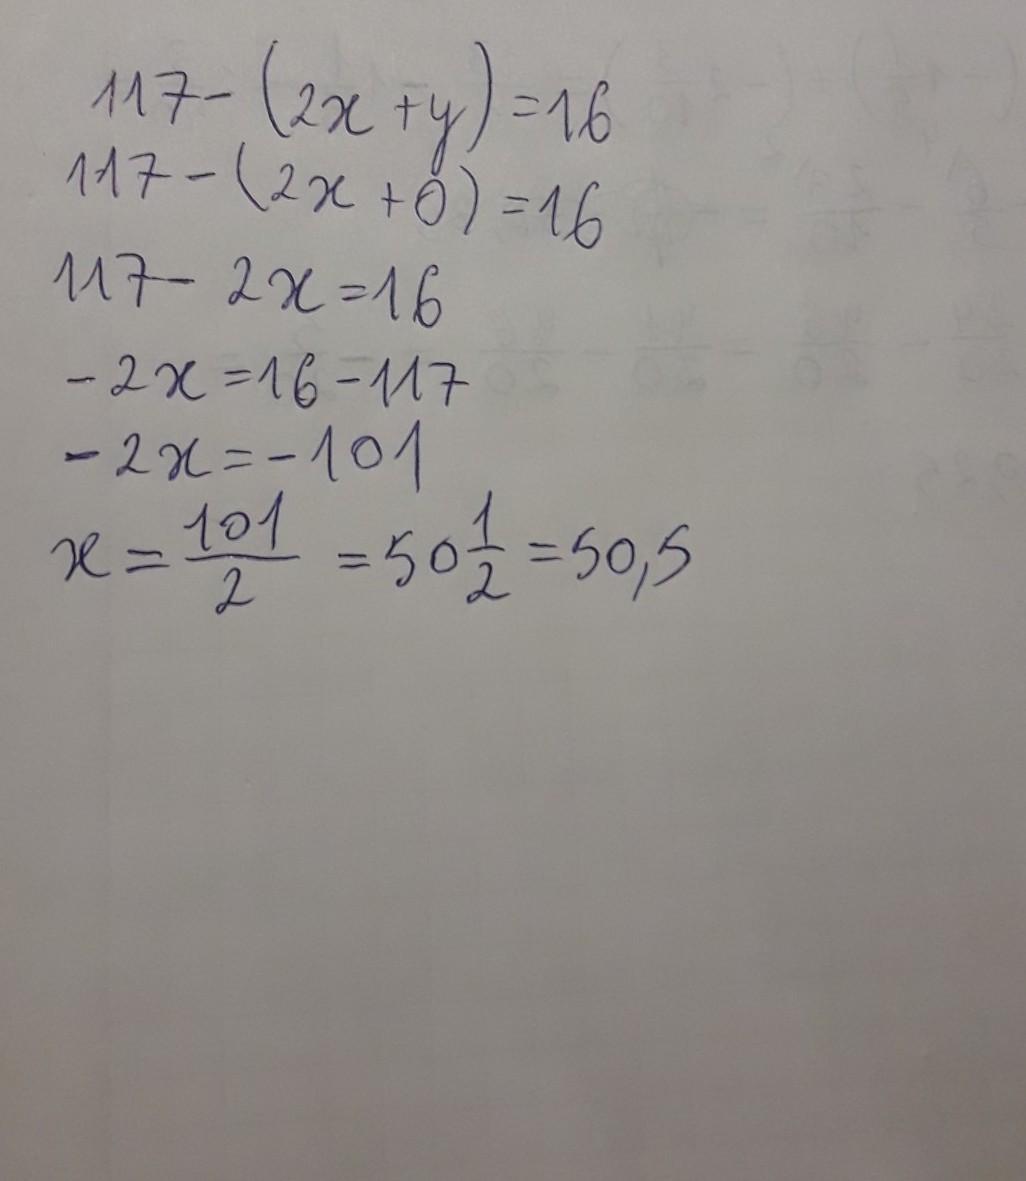 117-(2x+y)=16
117-(2x+0)=16
117-2x=16
-2x=16-117
-2x=-101
x=101/2=50 1/2=50,5